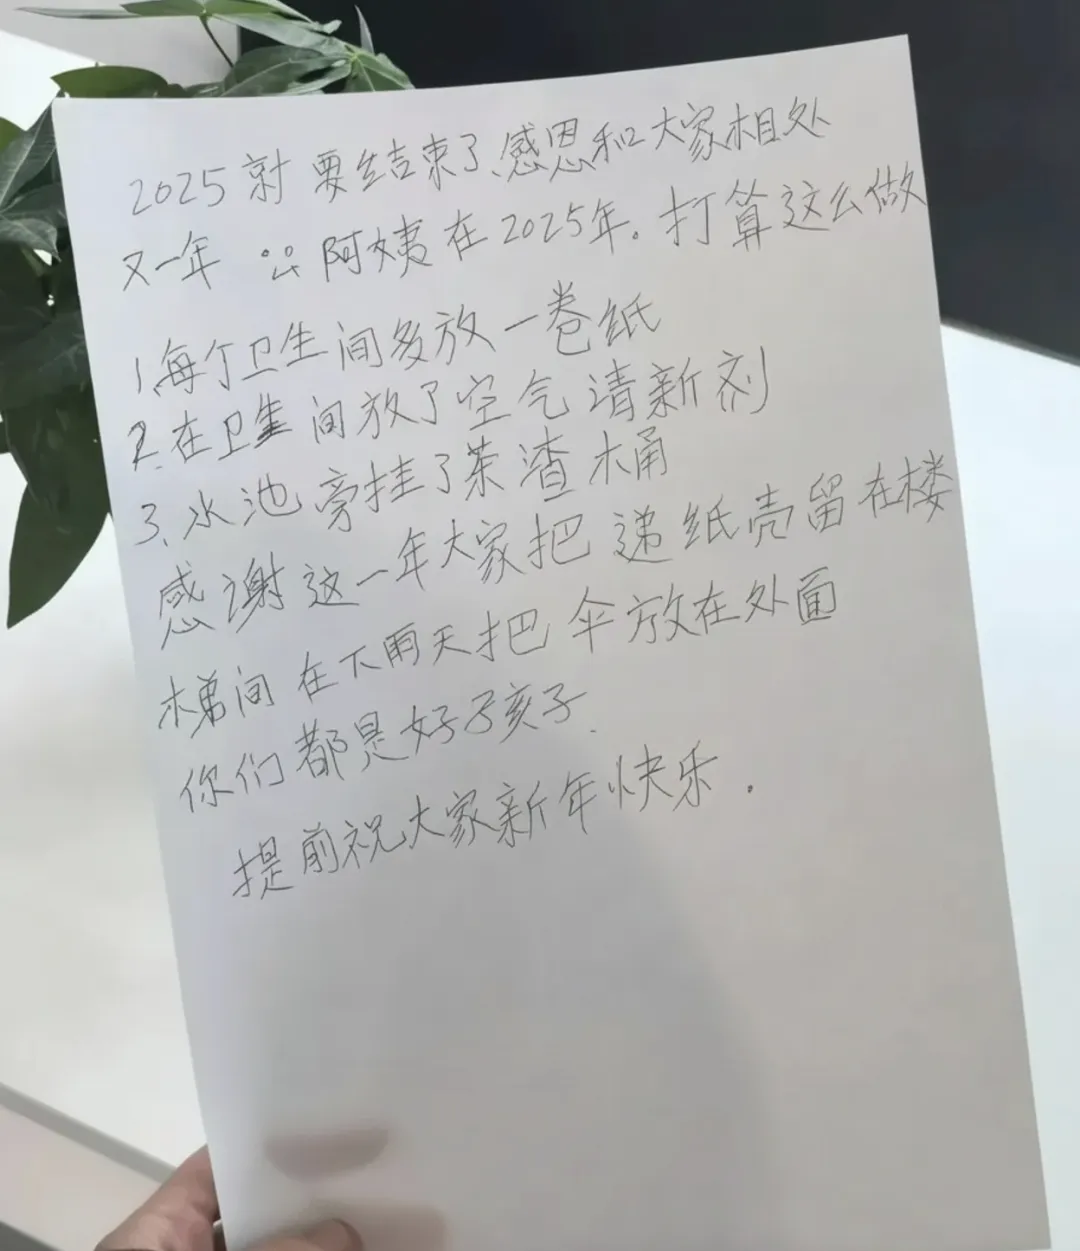 2025就要结束了、感恩和大家相处
又一年 阿姨在2025年。打算这么做
1、每个卫生间多放一卷纸
2、在卫生间放了空气清新剂
3、水池旁挂了茶渣桶
感谢这一年大家把递纸壳留在楼
梯间 在下雨天把伞放在处面
你们都是好孩子.
提前祝大家新年快乐.